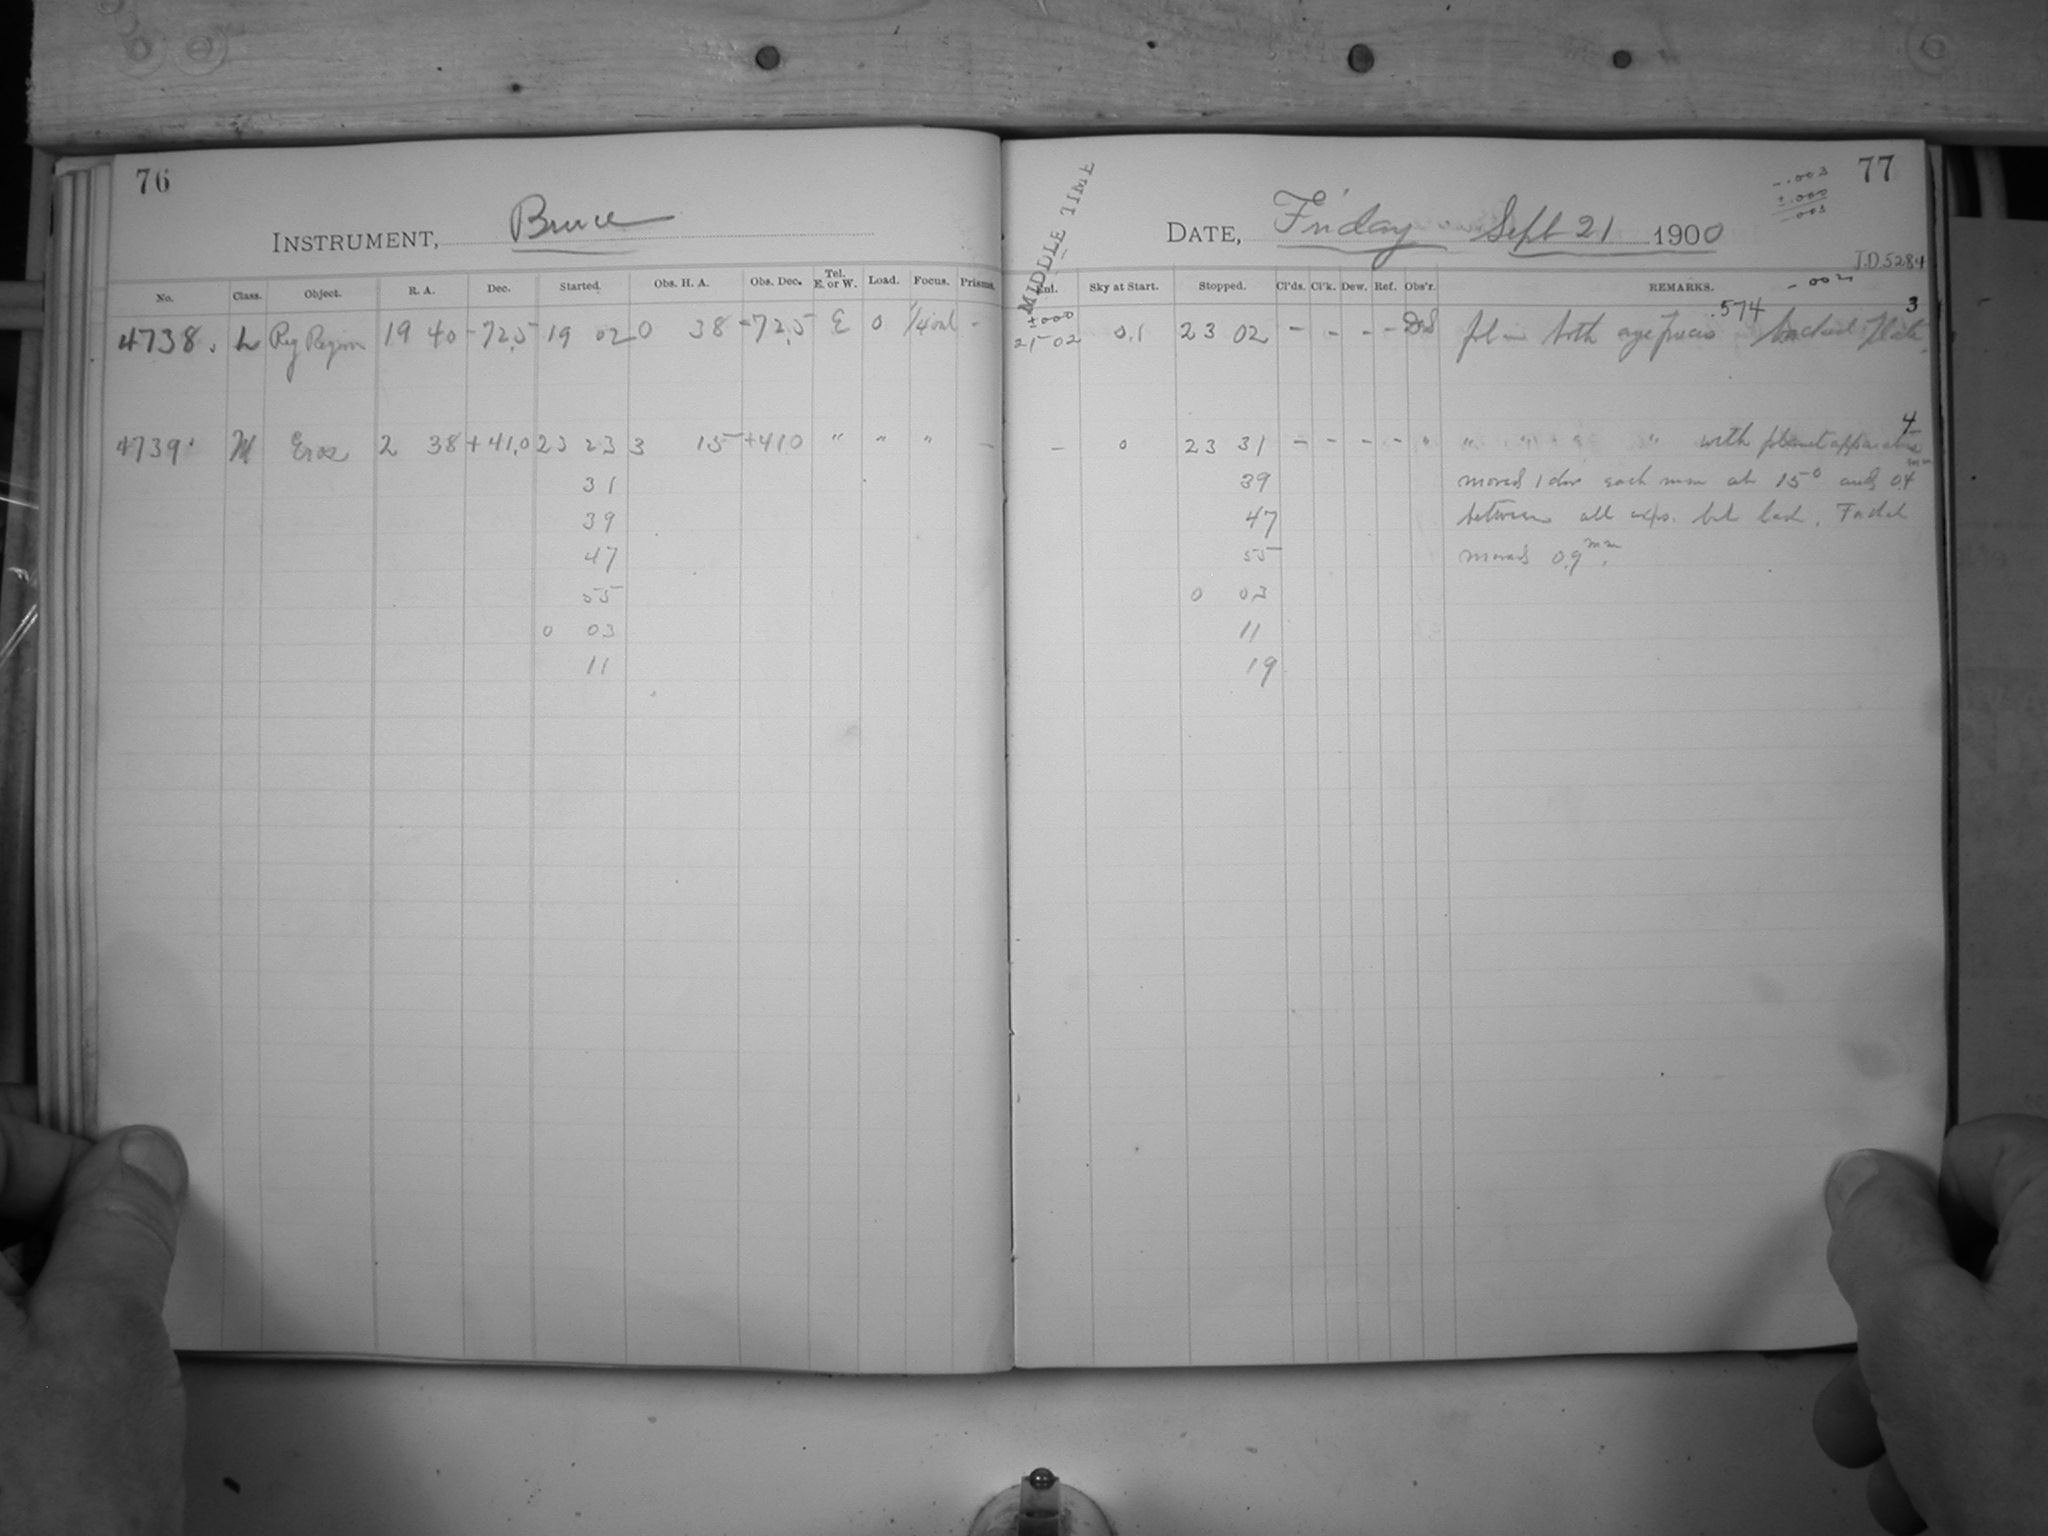 76
INSTRUMENT, Bruce
No. Class. Object. R. A. Dec. Started. Obs. H. A. Obs. Dec. Tel. E. or W. Load. Focus. Prisms.
4738. L Reg Region 19 40 -72.5 19 02 0 38 -72.5 E 0 -
4739. M Eros 2 38 +41.0 23 23 3 15 +41.0 " " " -
31
39
47
55
0 03
11
77
-.003
±.000
-.003
MIDDLE TIME
DATE, Friday Sept 21 1900
J.D. 5284
-.002
Ent. Sky at Start. Stopped. Cl'ds. Cl'k. Dew. Ref. Obs'r. REMARKS.
.574 3
±000
21 02 0.1 23 02 - - - - both backed plate
4
- 0 23 31 - - - - " " " with planet apparatus
39 moved 1 div each min at 15° and 0.4 mm
47 between all exps. but last. Total
55 moved 0.9 mm.
0 03
11
19